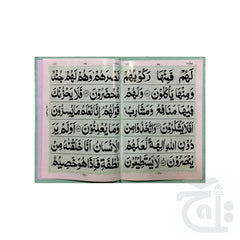 لَهُمْ فَمِنْهَا رَكُوْبُهُمْ
وَمِنْهَا يَاْكُلُوْنَ وَلَهُمْ
فِيْهَا مَنَافِعُ وَمَشَارِبُ
اَفَلَا يَشْكُرُوْنَ وَاتَّخَذُوْا مِنْ
دُوْنِ اللّٰهِ اٰلِهَةً لَّعَلَّهُمْ
يُنْصَرُوْنَ لَا يَسْتَطِيْعُوْنَ
نَصْرَهُمْ وَهُمْ لَهُمْ جُنْدٌ
مُّحْضَرُوْنَ فَلَا يَحْزُنْكَ
قَوْلُهُمْ اِنَّا نَعْلَمُ مَا يُسِرُّوْنَ
وَمَا يُعْلِنُوْنَ اَوَلَمْ يَرَ
الْاِنْسَانُ اَنَّا خَلَقْنٰهُ مِنْ
نُّطْفَةٍ فَاِذَا هُوَ خَصِيْمٌ